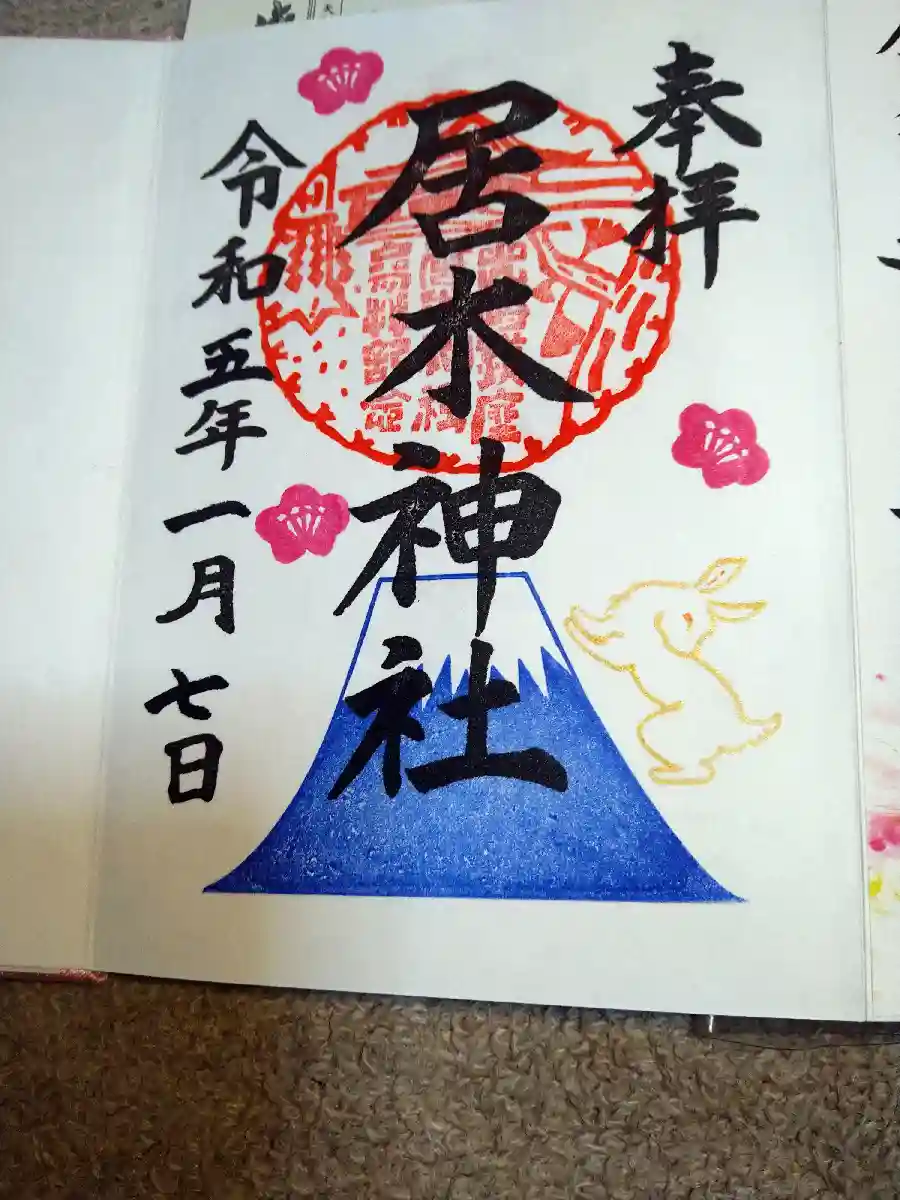 奉拝
居木神社
令和五年一月七日